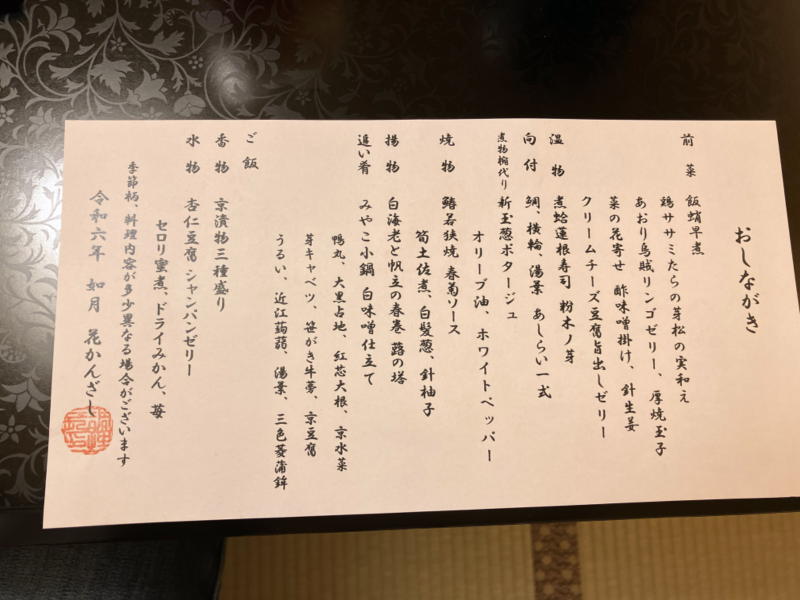 おしながき
前菜 飯蛸早煮
鶏ササミたらの芽松の実和え
あおり烏賊リンゴゼリー、厚焼玉子
菜の花寄せ 酢味噌掛け、針生姜
クリームチーズ豆腐旨出しゼリー
温物 煮蛤蓮根寿司 粉木ノ芽
向付 鯛、横輪、湯葉 あしらい一式
煮物椀代り 新玉葱ポタージュ
オリーブ油、ホワイトペッパー
焼物 鰆若狭焼 春菊ソース
筍土佐煮、白髪葱、針柚子
揚物 白海老と帆立の春巻 蕗の塔
追い肴 みやこ小鍋 白味噌仕立て
鴨丸、大黒占地、紅芯大根、京水菜
芽キャベツ、笹がき牛蒡、京豆腐
うるい、近江蒟蒻、湯葉、三色菱蒲鉾
ご飯
香物 京漬物三種盛り
水物 杏仁豆腐 シャンパンゼリー
セロリ蜜煮、ドライみかん、苺
季節柄、料理内容が多少異なる場合がございます
令和六年 如月 花かんざし